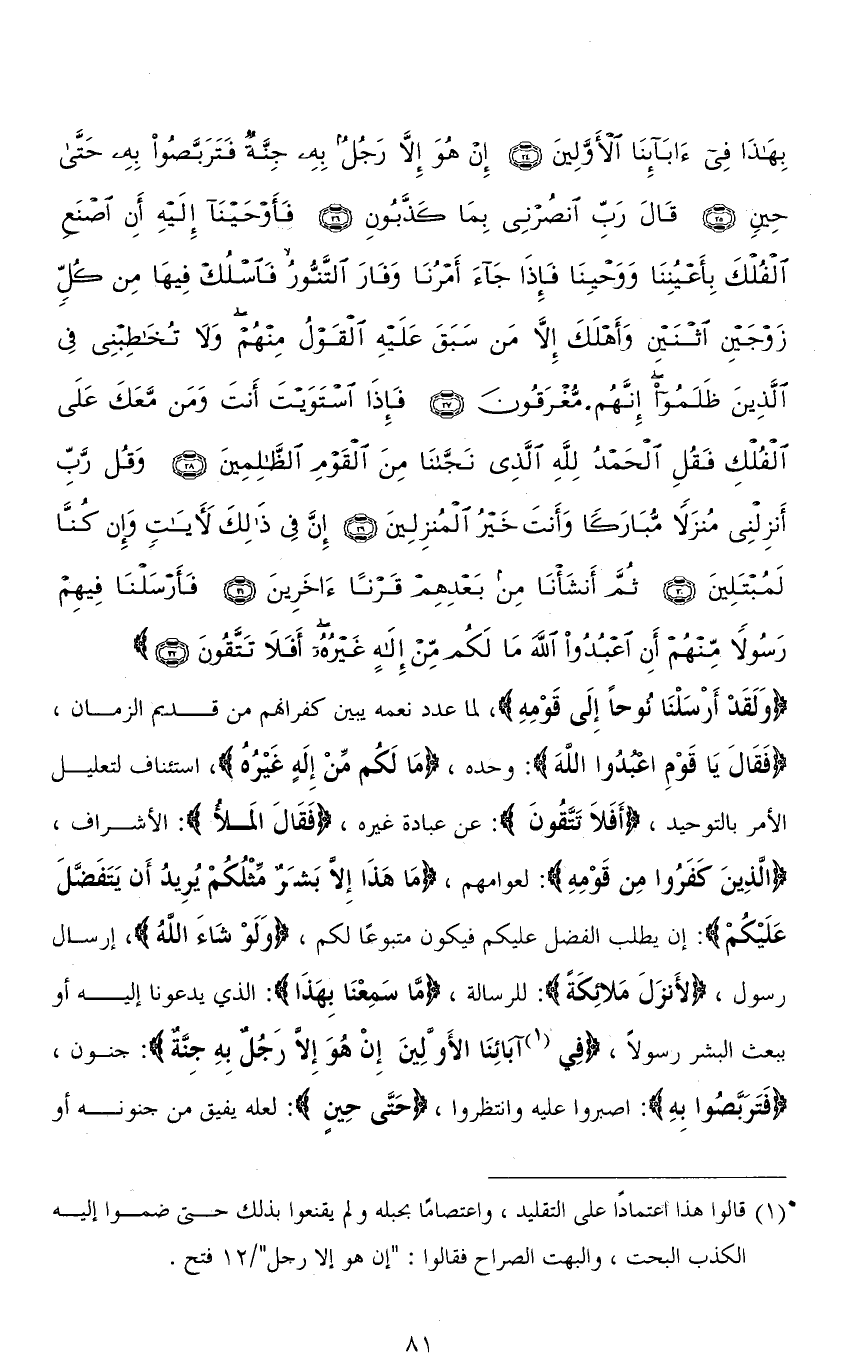 بِهَٰذَا فِىٓ ءَابَآئِنَا ٱلْأَوَّلِينَ ﴿٢٤﴾ إِنْ هُوَ إِلَّا رَجُلٌۢ بِهِۦ جِنَّةٌ فَتَرَبَّصُوا۟ بِهِۦ حَتَّىٰ
حِينٍ ﴿٢٥﴾ قَالَ رَبِّ ٱنصُرْنِى بِمَا كَذَّبُونِ ﴿٢٦﴾ فَأَوْحَيْنَآ إِلَيْهِ أَنِ ٱصْنَعِ
ٱلْفُلْكَ بِأَعْيُنِنَا وَوَحْيِنَا فَإِذَا جَآءَ أَمْرُنَا وَفَارَ ٱلتَّنُّورُ ۙ فَٱسْلُكْ فِيهَا مِن كُلٍّ
زَوْجَيْنِ ٱثْنَيْنِ وَأَهْلَكَ إِلَّا مَن سَبَقَ عَلَيْهِ ٱلْقَوْلُ مِنْهُمْ ۖ وَلَا تُخَٰطِبْنِى فِى
ٱلَّذِينَ ظَلَمُوٓا۟ ۖ إِنَّهُم مُّغْرَقُونَ ﴿٢٧﴾ فَإِذَا ٱسْتَوَيْتَ أَنتَ وَمَن مَّعَكَ عَلَى
ٱلْفُلْكِ فَقُلِ ٱلْحَمْدُ لِلَّهِ ٱلَّذِى نَجَّىٰنَا مِنَ ٱلْقَوْمِ ٱلظَّٰلِمِينَ ﴿٢٨﴾ وَقُل رَّبِّ
أَنزِلْنِى مُنزَلًا مُّبَارَكًا وَأَنتَ خَيْرُ ٱلْمُنزِلِينَ ﴿٢٩﴾ إِنَّ فِى ذَٰلِكَ لَءَايَٰتٍ وَإِن كُنَّا
لَمُبْتَلِينَ ﴿٣٠﴾ ثُمَّ أَنشَأْنَا مِنۢ بَعْدِهِمْ قَرْنًا ءَاخَرِينَ ﴿٣١﴾ فَأَرْسَلْنَا فِيهِمْ
رَسُولًا مِّنْهُمْ أَنِ ٱعْبُدُوا۟ ٱللَّهَ مَا لَكُم مِّنْ إِلَٰهٍ غَيْرُهُۥٓ ۖ أَفَلَا تَتَّقُونَ ﴿٣٢﴾ ﴾
﴿وَلَقَدْ أَرْسَلْنَا نُوحاً إِلَى قَوْمِهِ﴾، لما عدد نعمه يبين كفرانهم من قديم الزمان ،
﴿فَقَالَ يَا قَوْمِ اعْبُدُوا اللَّهَ﴾: وحده ، ﴿مَا لَكُم مِّنْ إِلَهٍ غَيْرُهُ﴾، استئناف لتعليل
الأمر بالتوحيد ، ﴿أَفَلاَ تَتَّقُونَ ﴾: عن عبادة غيره ، ﴿فَقَالَ المَلأُ ﴾: الأشراف ،
﴿الَّذِينَ كَفَرُوا مِن قَوْمِهِ﴾: لعوامهم ، ﴿مَا هَذَا إِلاَّ بَشَرٌ مِّثْلُكُمْ يُرِيدُ أَن يَتَفَضَّلَ
عَلَيْكُمْ﴾: إن يطلب الفضل عليكم فيكون متبوعًا لكم ، ﴿وَلَوْ شَاءَ اللَّهُ﴾، إرسال
رسول ، ﴿لأَنزَلَ مَلائِكَةً﴾: للرسالة ، ﴿مَّا سَمِعْنَا بِهَذَا﴾: الذي يدعونا إليه أو
ببعث البشر رسولاً ، ﴿فِي (١) آبَائِنَا الأَوَّلِينَ إِنْ هُوَ إِلاَّ رَجُلٌ بِهِ جِنَّةٌ﴾: جنون ،
﴿فَتَرَبَّصُوا بِهِ﴾: اصبروا عليه وانتظروا ، ﴿حَتَّى حِينٍ ﴾: لعله يفيق من جنونه أو
(١) قالوا هذا اعتمادًا على التقليد ، واعتصامًا بحبله و لم يقنعوا بذلك حتى ضموا إليه
الكذب البحت ، والبهت الصراح فقالوا : "إن هو إلا رجل"/١٢ فتح .
٨١